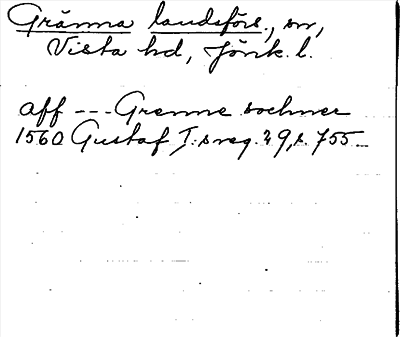 Gränna landsförs., sn,
Vista hd, Jönk. l.
aff --- Grenne sochner
1560 Gustaf I:s reg. 29, s. 755